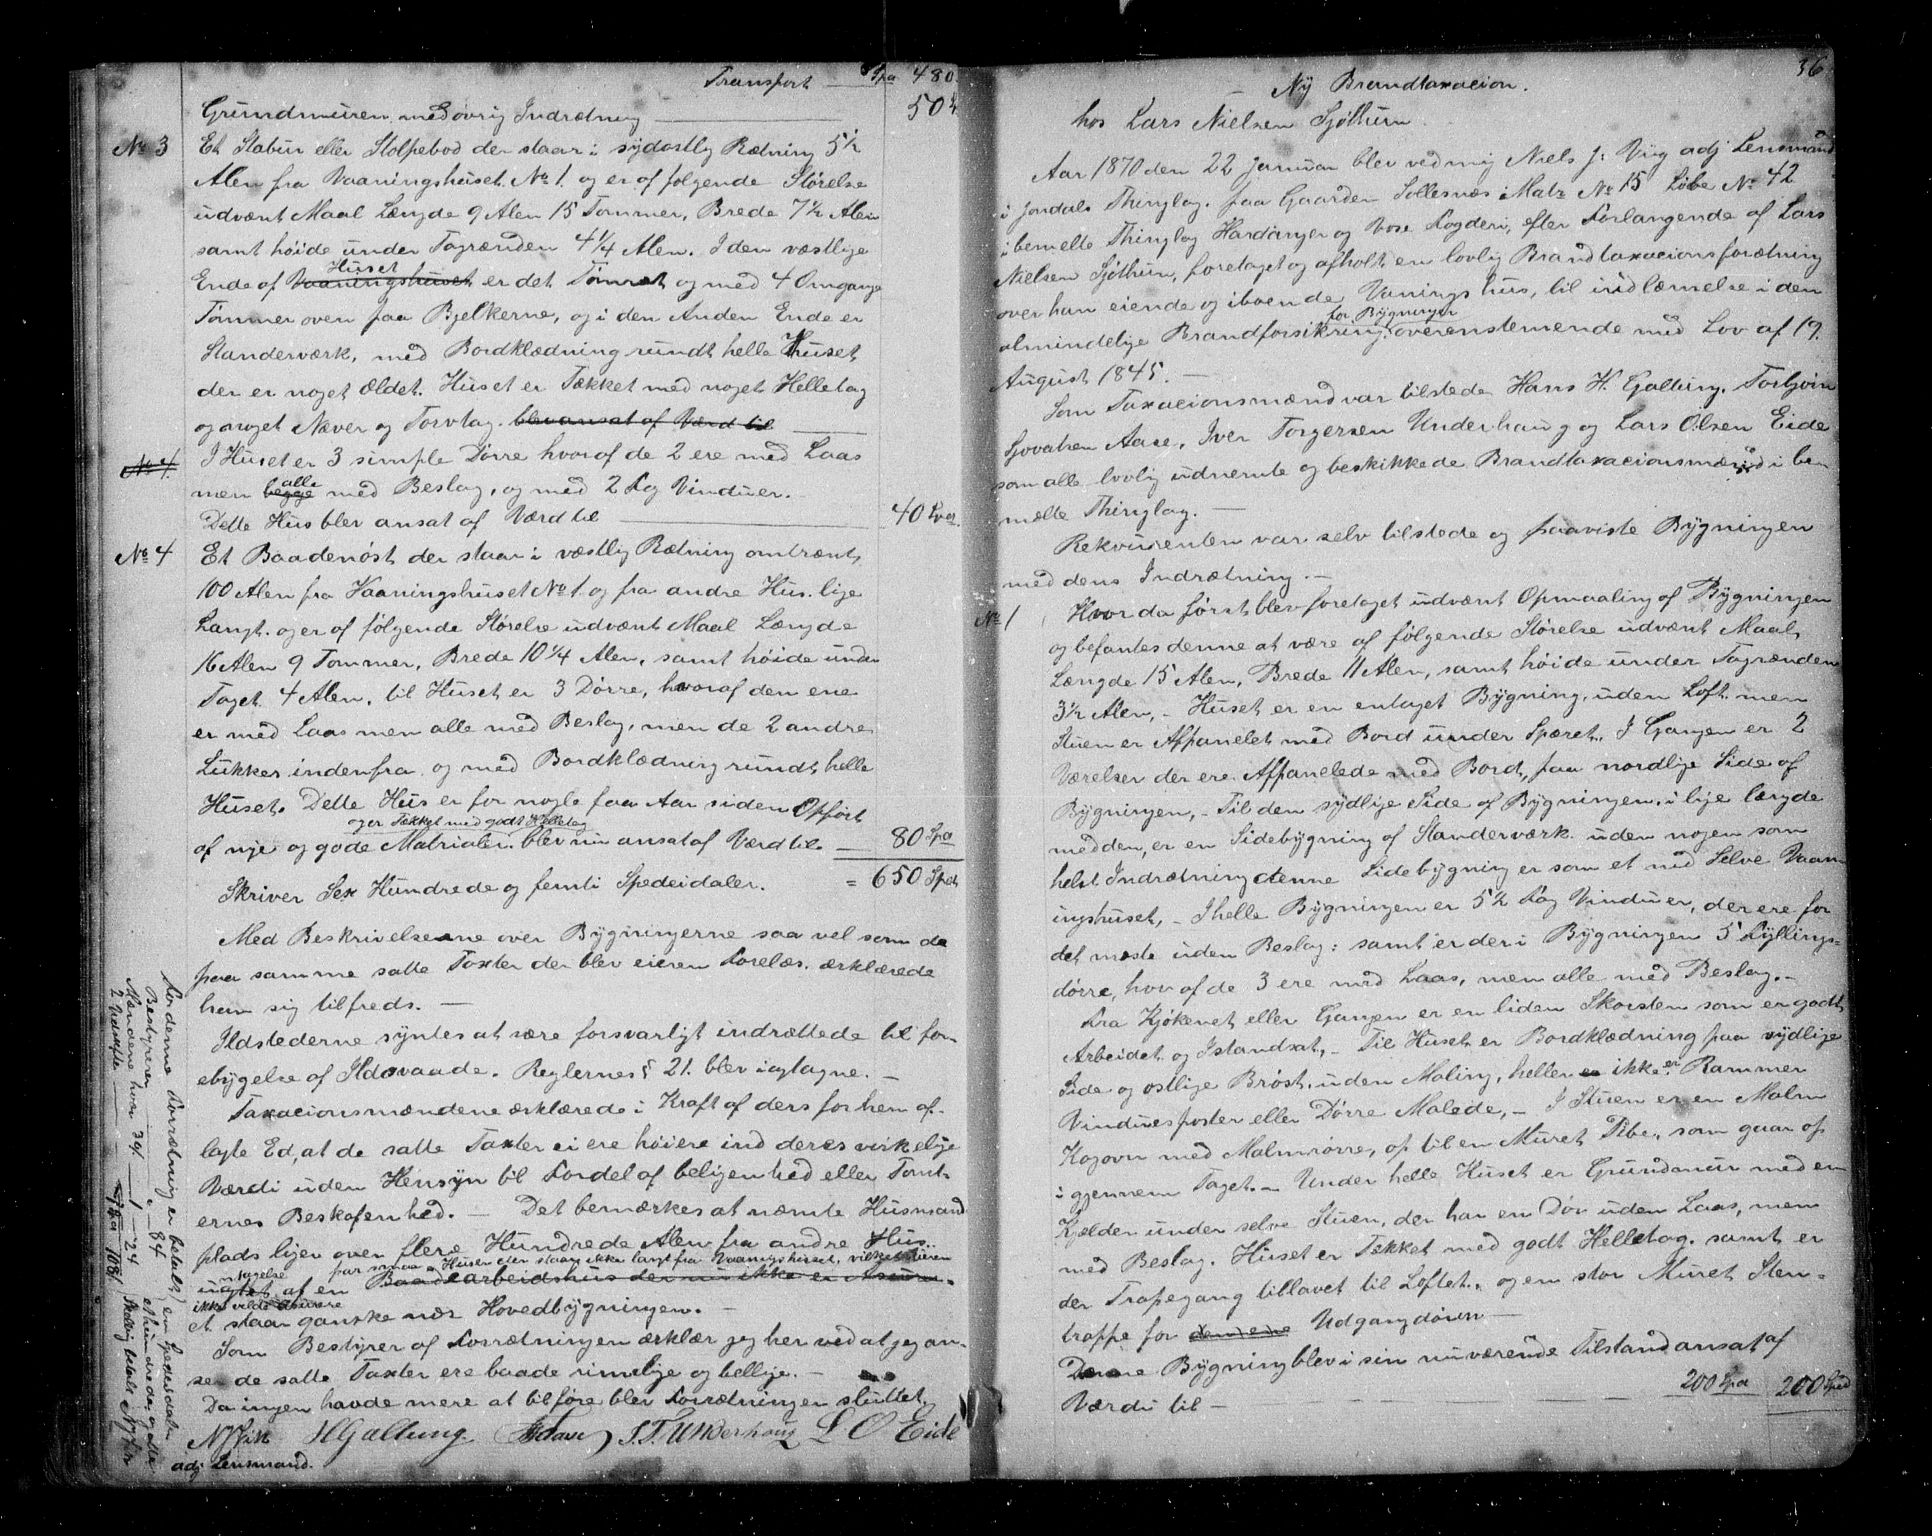 Transport — Spd 480
Grundmuren, med øvrig Indrætning — 50 "
No 3 Et Stabur eller Stolpebod der staar i sydostlig Rætning 5 1/2
Alen fra Vaaningshuset No 1. og er af følgende Størelse
udvænt Maal Længde 9 Alen 15 Tommer, Brede 7 1/2 Alen
samt høide under Tagrænden 4 1/4 Alen. I den væstlige
Ende af Vaaningshuset Huset er det Tømret og med 4 Omgange
Tømmer oven paa Bjelkerne, og i den Anden Ende er
Standerværk, med Bordklædning rundt helle Huset
der er noget Ældet. Huset er Tækket med noget Helletag
og noget Næver og Torvtag. blev ansat af Værd til —
No 4. I Huset er 3 simple Dørre hvoraf de 2 ere med Laas
men begge alle med Beslag, og med 2 Fag Vinduer. —
Dette Hus blev ansat af Værd til — 40
No 4 Et Baadenøst der staar i væstlig Rætning omtrænt
100 Alen fra Vaaningshuset No 1. og fra andre Hus. lige
Langt. og er af følgende Størelse udvænt Maal Længde
16 Alen 9 Tommer, Brede 10 1/4 Alen, samt høide under
Taget 4 Alen, til Huset er 3 Dørre, hvoraf den ene
er med Laas men alle med Beslag, men de 2 andre
Lukkes indenfra og med Bordklædning rundt helle
Huset. Dette Hus er for nogle faa Aar siden Opført
og er Tækket med godt Helletag
af nye og gode Matrialer. blev nu ansat af Værd til — 80 Spd
Skriver Sex Hundrede og femti Spedeidaler. = 650 Spd
Med Beskrivelserne over Bygningerne saa vel som de
paa samme satte Taxter der blev eieren Forelæs. ærklærede
han sig tilfreds. —
Ildstederne syntes at være forsvarligt indrættede til for-
ebygelse af Ildsvaade. Reglernes § 21. blev iagtagne. —
Taxacionsmændene ærklærede i Kraft af ders forhen af-
lagte Ed, at de satte Taxter ei ere høiere ind deres virkelige
Værdi uden Hensyn til Fordel af beligenhed eller Tomt-
ernes Beskafenhed. — Det bemærkes at næmte Husmand
plads liger over flere Hundrede Alen fra andre Hus..
par smaa Huser der staar ikke langt fra Vaaningshuset, vilket eieren
untagelse af en Baadearbeidshus der nu ikke er Asura-
ikke vilde Asurere
et staar ganske nær Hovedbygningen. —
Som Bestyrer af Forrætningen ærklær jeg her ved at jeg an-
ser de satte Taxter ere baade rimelige og bellige. —
Da ingen havde mere at tilføre blev Forrætningen sluttet.
NJVik HGaltung TSAase I.T.Underhaug L O Eide
adj Lensmand.
For denne Forrætning er betalt
Bestyreren — 84
Mændene hver 39/ — 1 — 24
2 Udskrifter —
Spd 108/
36
Ny Brandtaxacion.
hos Lars Nielsen Sjøthun
Aar 1870 den 22 Januar blev ved mig Niels J: Viig adj Lensmand
i Jondals Thinglag. paa Gaarden Sollesnæs Matr No 15 Løbe No 42
i bemelte Thinglag Hardanger og Vose Fogderi, efter Forlangende af Lars
Nielsen Sjøthun, foretaget og afholdt en lovlig Brandtaxacionsforætning
over han eiende og iboende Vanings hus, til indlæmelse i den
almindelige Brandforsikring for Bygninger overenstemende med Lov af 19.
August 1845. —
Som Taxacionsmænd var tilstede Hans H. Galtung. Torbjørn
Sjovatsen Aase, Iver Torgersen Underhaug og Lars Olsen Eide
som alle lovlig udnemte og beskikkede Brandtaxacionsmænd i be
mælte Thinglag. —
Rekvirenten var selv tilstede og paaviste Bygningen
med dens Indrætning. —
No 1 Hvor da først blev foretaget udvænt Opmaaling af Bygningen
og befantes denne at være af følgende Størelse udvænt Maal,
Længde 15 Alen, Brede 11 Alen, samt høide under Tagrænden
3 1/2 Alen, - Huset er en entaget Bygning, uden Loft men
Stuen er Afpanelet med Bord under Spæret. I Gangen er 2
Værelser der ere Afpanelede med Bord, paa nordlige Side af
Bygningen, - Til den sydlige Side af Bygningen, i lige længde
med den, er en Sidebygning af Standerværk uden nogen som
helst Indrætning denne Sidebygning er som et med Selve Vaan
ingshuset, - I helle Bygningen er 5 1/2 Fag Vinduer, der ere for
det mæste uden Beslag: samt er der i Bygningen 5 Fyllings-
dørre, hvoraf de 3 ere med Laas, men alle med Beslag. -
Fra Kjøkenet eller Gangen er en liden Skorsten som er godt
Arbeidet og Istandsat, - Til Huset er Bordklædning paa sydlige
Side og ostlige Brøst, uden Maling, heller er ikke er Rammer
Vinduesposter eller Dørre Malede, - I Stuen er en Malm
Kogovn med Malmrørre, op til en Muret Pibe, som gaar op
igjennem Taget. - Under helle Huset er Grundmur med en
Kjelder under selve Stuen, der har en Dør uden Laas, men
med Beslag. Huset er Tækket med godt Helletag. samt er
der Trapegang tillavet til Loftet, og en stor Muret Sten-
trappe for den ene Udgangdøren —
Denne Bygning blev i sin nuværende Tilstand ansat af
Værdi til — 200 Spd 200 Spd